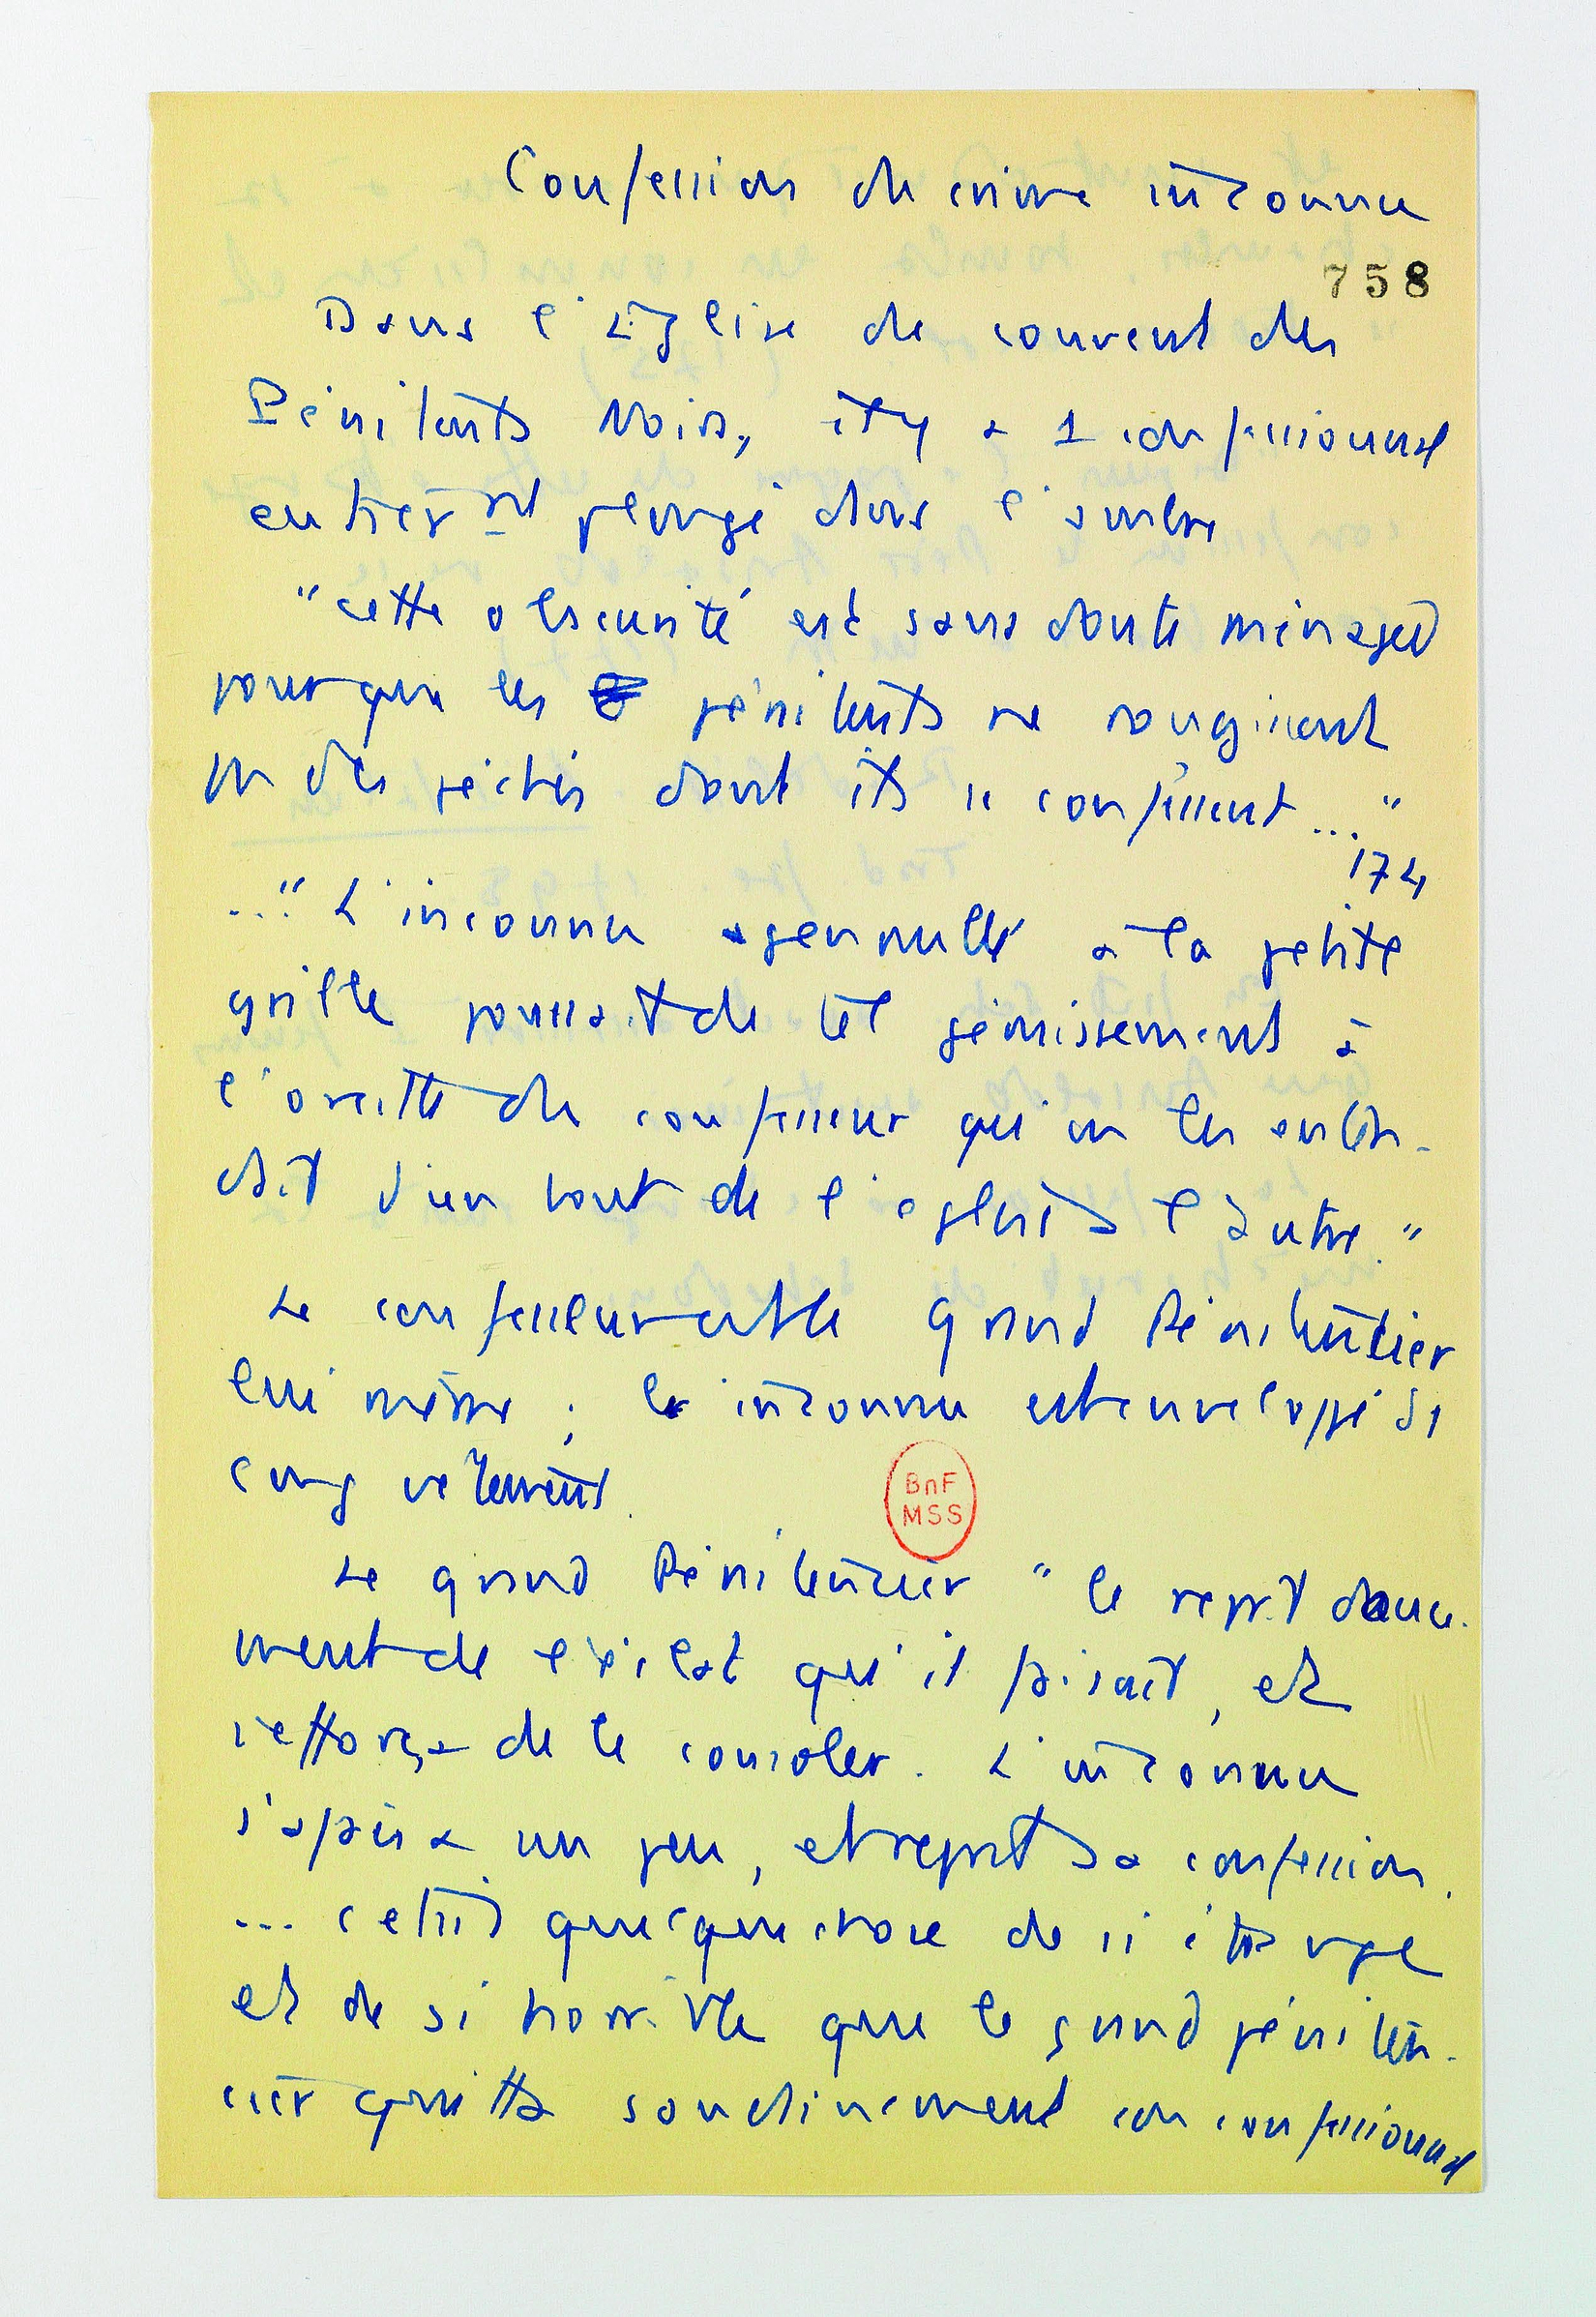 Confession de crime inconnu
758
Dans l'Église du couvent des
Pénitents Noirs, il y a 1 confessionnal
entièrt plongé dans l'ombre
"cette obscurité est sans doute ménagée
pour que les pénitents ne rougissent
pas des péchés dont ils se confessent..."
174
..." L'inconnu agenouillé à la petite
grille poussait de tel gémissements à
l'oreille du confesseur qu'on les enten-
dait d'un bout de l'église à l'autre."
Le confesseur est le grand Pénitencier
lui même ; le inconnu est enveloppé ds
long vêtement.
Le grand Pénitencier "le reprit douce-
ment de l'éclat qu'il faisait, et
s'efforça de le consoler. L'inconnu
s'apaisa un peu, et reprit sa confession.
... c'était quelque chose de si étrange
et de si horrible que le grand péniten-
cier quitta soudainement son confessionnal
BnF
MSS